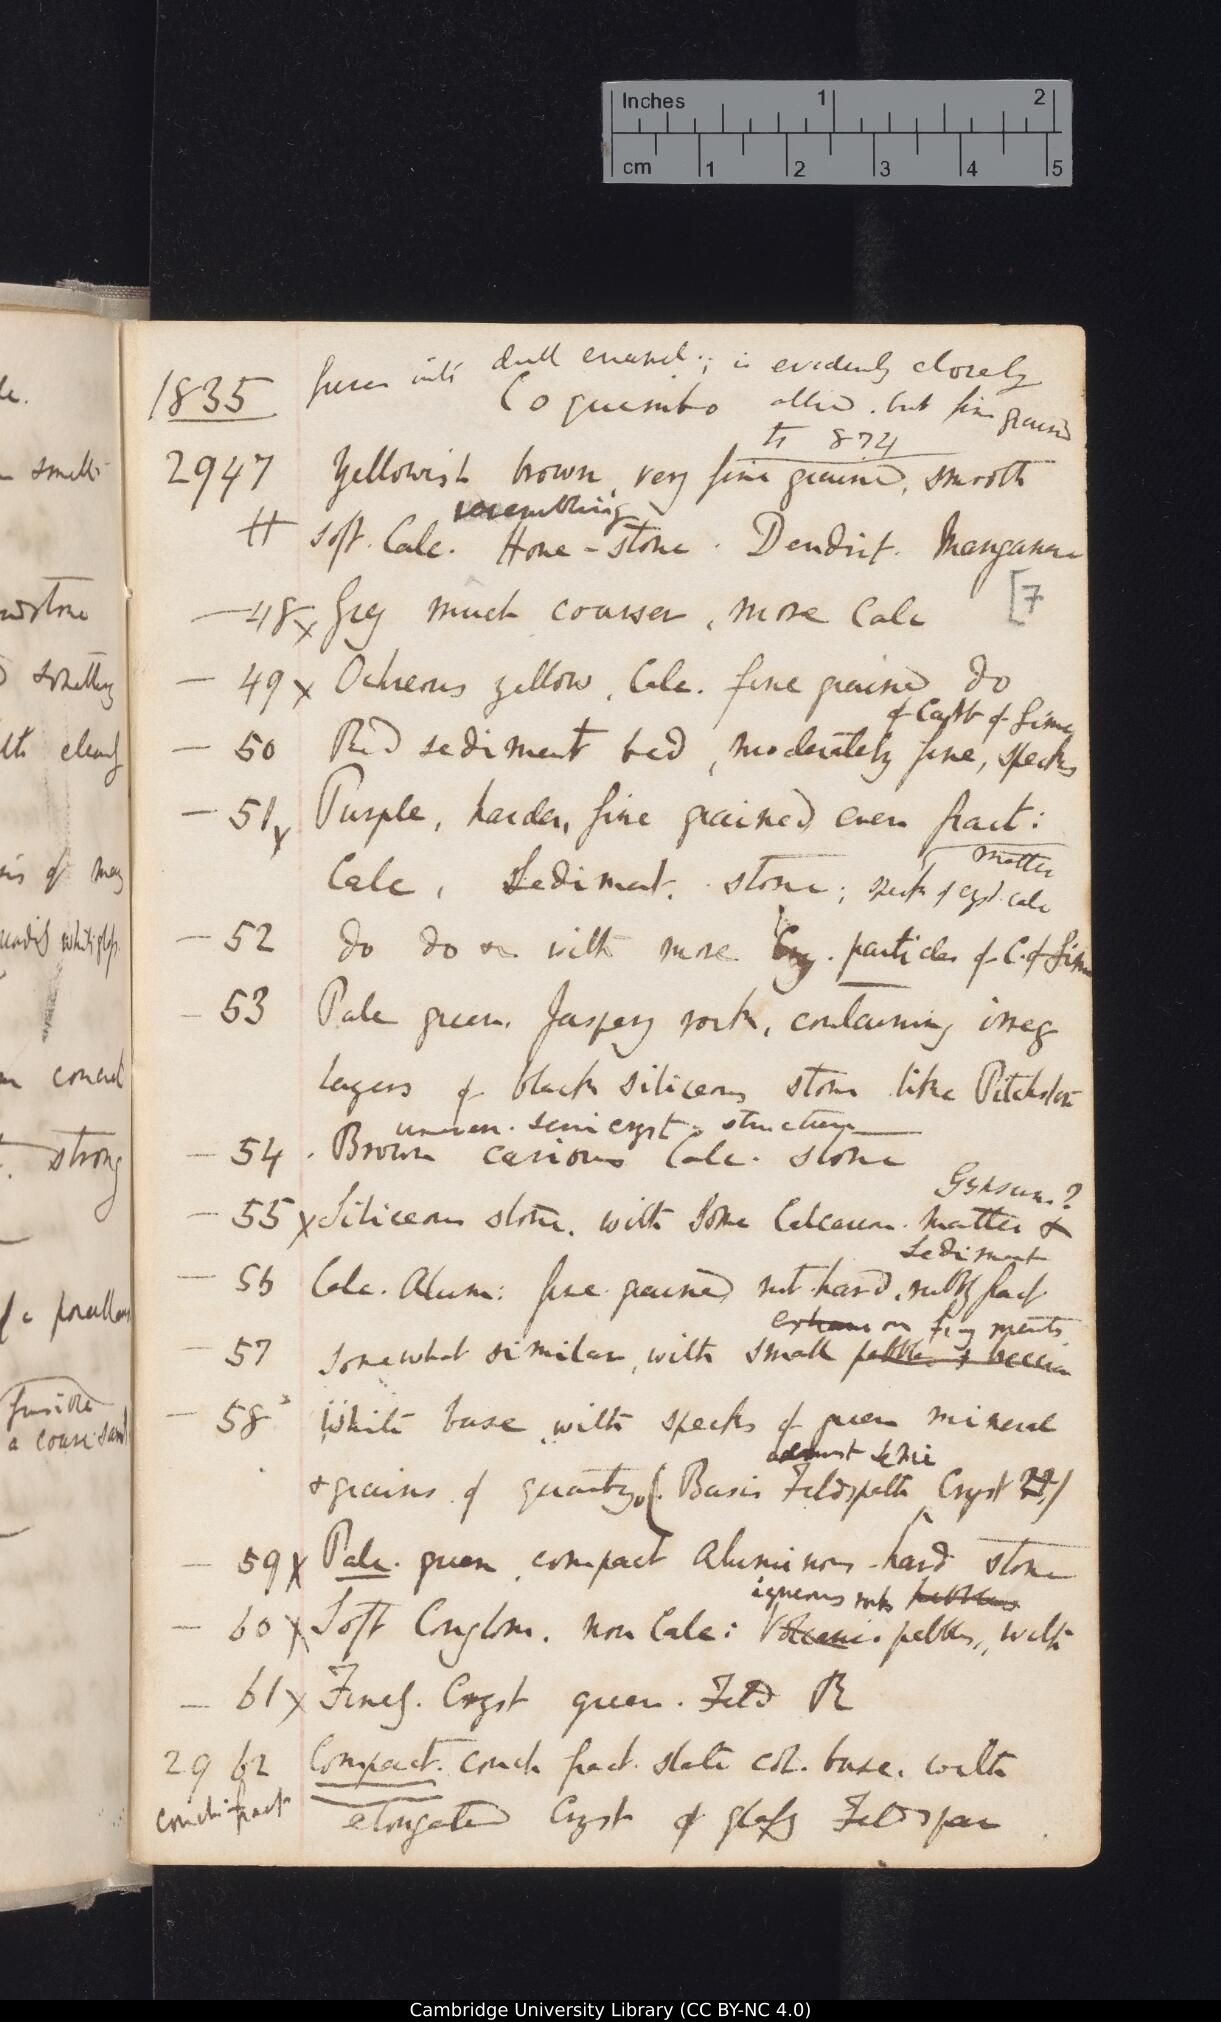 Inches 1 2
cm 1 2 3 4 5
fuses into dull enamel:; is evidently closely
1835 Coquimbo allied. but fine grained
to 874
2947 Yellowish brown, very fine grained, smooth
resembling
soft. Calc. Hone-stone. Dendrit. Manganese
— 48 x Grey much coarser, more Calc [7
— 49 x Ochreous yellow, Calc. fine grained do
of Carb of Lime
— 50 Red sediment bed, moderately fine, specks
— 51 x Purple, harder, fine grained even fract:
matter
Calc, Sediment. stone; specks of cryst. calc
— 52 do do with more Cry. particles of C. of Lime
— 53 Pale green. Jaspery rock, containing irreg
layers of black siliceous stone like Pitchstone
uneven. semi cryst. structure
— 54 . Brown carious Calc. stone
Gypsum?
— 55 x Siliceous stone. with some Calcareous. matter &
Sediment
— 56 Calc. Alum: fine grained not hard. fract
fragments
— 57 somewhat similar, with small pebbles & breccia
— 58 White base, with specks of green mineral
almost
& grains of quartz, (Basis Feldspath Cryst
— 59 x Pale. green, compact Aluminous hard stone
igneous rocks pebbles
— 60 x Soft Conglom. non Calc: Volcanic. pebbles,, with
— 61 x Finely. Cryst green. Feld R
2962 Compact. conch fract. slate col. base. with
conch-fract elongated Cryst of glassy Feldspar
le.
smell
sandstone
something
strong
fusible
Cambridge University Library (CC BY-NC 4.0)